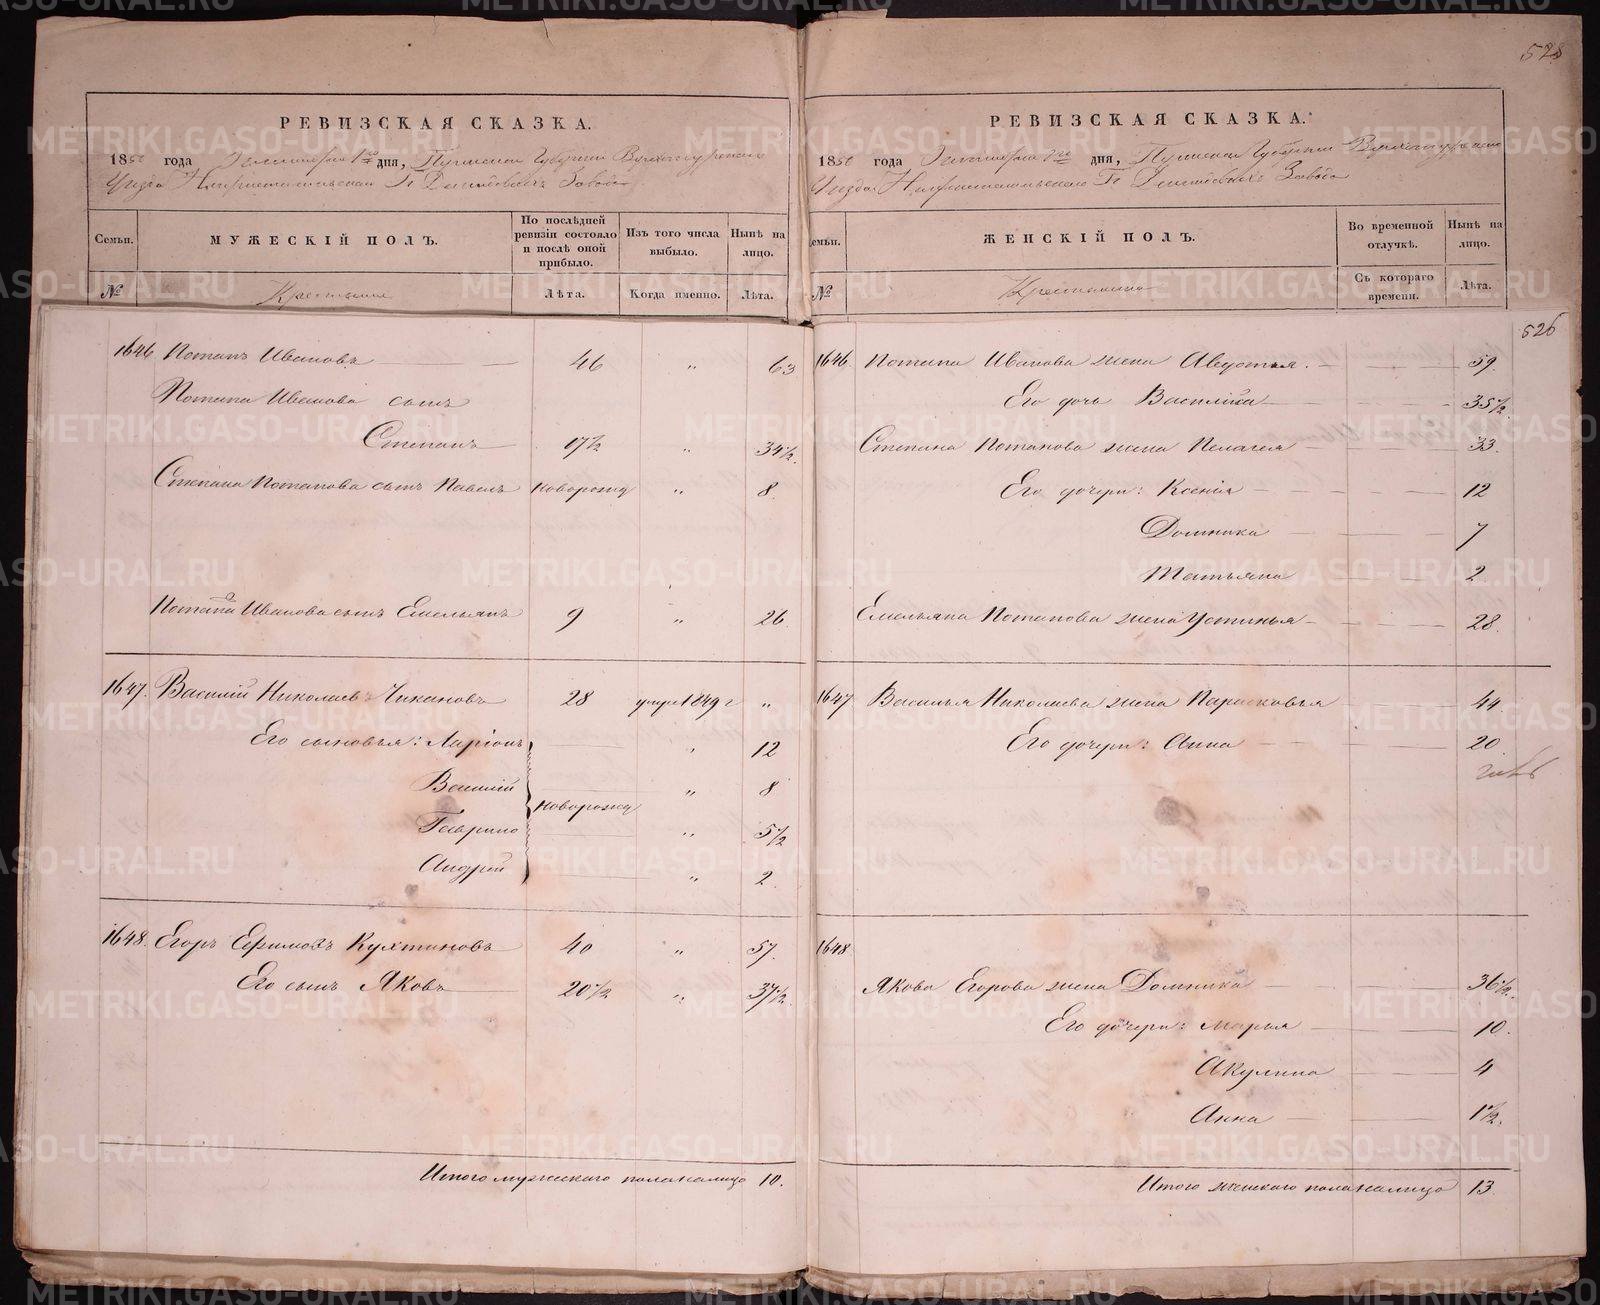 528
РЕВИЗСКАЯ СКАЗКА.
1850 года дня, Пермской Губерніи Верхотурскаго
Уѣзда Нижнетагильскаго Гг Демидовыхъ Завода
Семьи. МУЖЕСКІЙ ПОЛЪ. По послѣдней ревизіи состояло и послѣ оной прибыло. Изъ того числа выбыло. Нынѣ на лицо.
№ Крестьяне Лѣта. Когда именно. Лѣта.
1646 Потапъ Ивановъ 46 „ 63
Потапа Иванова сынъ
Степанъ 17½ „ 34½.
Степана Потапова сынъ Павелъ новорожд „ 8
Потапа Иванова сынъ Емельянъ 9 „ 26
1647. Василій Николаевъ Чикановъ 28 умре 1849 г „
Его сыновья: Ларіонъ „ 12
Василій „ 8
новорожд
Гаврило „ 5½
Андрей „ 2
1648. Егоръ Ефимовъ Кухтиновъ 40 „ 57.
Его сынъ Яковъ 20½ „ 37½.
Итого мужескаго пола налицо 10.
РЕВИЗСКАЯ СКАЗКА.
1850 года дня, Пермской Губерніи Верхотурскаго
Уѣзда Нижнетагильскаго Гг Демидовыхъ Завода
Семьи. ЖЕНСКІЙ ПОЛЪ. Во временной отлучкѣ. Нынѣ на лицо.
№ Крестьянки Съ котораго времени. Лѣта.
526
1646 Потапа Иванова жена Авдотья. 59
Его дочь Василиса 35½
Степана Потапова жена Пелагея 33
Его дочери: Ксенія 12
Домника 7
Татьяна 2
Емельяна Потапова жена Устинья 28
1647 Василья Николаева жена Парасковья 44
Его дочери: Анна 20
1648
Якова Егорова жена Домника 36½.
Его дочери: Марья 10
Акулина 4
Анна 1½.
Итого женскаго пола налицо 13
METRIKI.GASO-URAL.RU